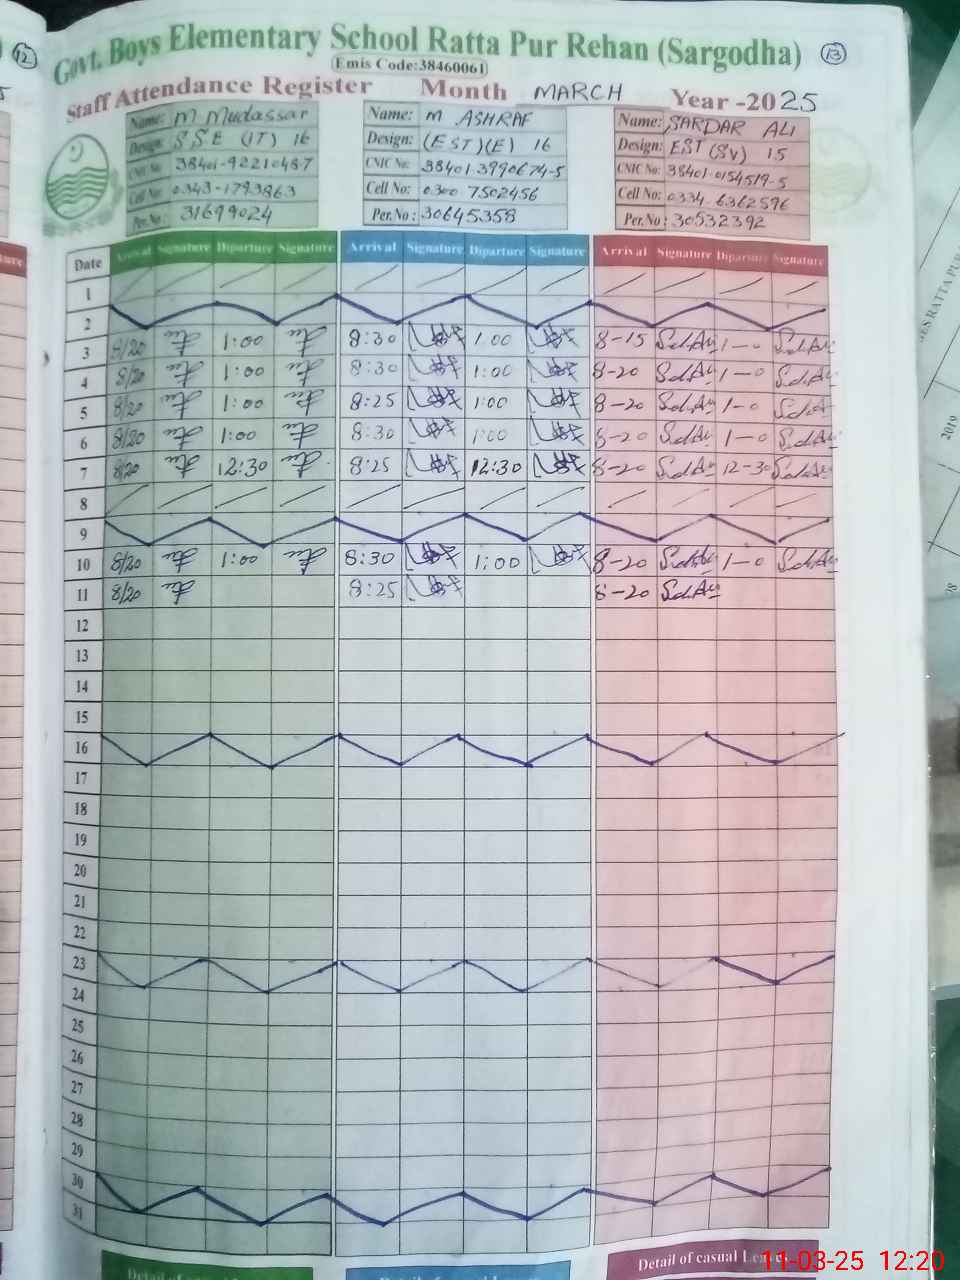 12
Govt. Boys Elementary School Ratta Pur Rehan (Sargodha) 13
(Emis Code:38460061)
Staff Attendance Register Month MARCH Year -2025
Name: M Mudassar Name: M ASHRAF Name: SARDAR ALI
Design: S.S.E (IT) 16 Design: (EST)(E) 16 Design: EST (SV) 15
CNIC No: 38401-9221048-7 CNIC No: 38401.3990674-5 CNIC No: 38401-0154519-5
Cell No: 0343-1793863 Cell No: 0300 7502456 Cell No: 0334.6362596
Per.No: 31699024 Per.No: 30645358 Per.No: 30532392
Date Arrival Signature Diparture Signature Arrival Signature Diparture Signature Arrival Signature Diparture Signature
1
2
3 8/20 1:00 8:30 1:00 8-15 1-0
4 8/20 1:00 8:30 1:00 8-20 1-0
5 8/20 1:00 8:25 1:00 8-20 1-0
6 8/20 1:00 8:30 1:00 8-20 1-0
7 8/20 12:30 8:25 12:30 8-20 12-30
8
9
10 8/20 1:00 8:30 1:00 8-20 1-0
11 8/20 8:25 8-20
12
13
14
15
16
17
18
19
20
21
22
23
24
25
26
27
28
29
30
31
Detail of casual Leaves
2019
11-03-25 12:20